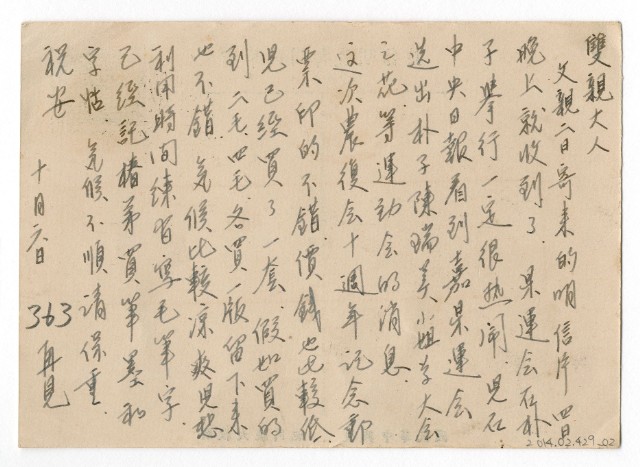 雙親大人
父親二日寄来的明信片 四日
晚上就收到了. 果運会在朴
子举行一定很热闹. 児在
中央日報看到嘉果運会
选出朴子陳瑞美小姐為大会
之花等運动会的消息.
这次農復会十週年记念郵
票印的不錯. 價錢也比較低
児已經買了一套. 假如買的
到二毛.四毛.各買一版留下来
也不錯 气候比較凉爽児想
利用時间練習寫毛筆字
已經託椿弟買筆墨和
字帖 气候不順請保重
祝安
十月六日 363 再見
2014.02.429_02